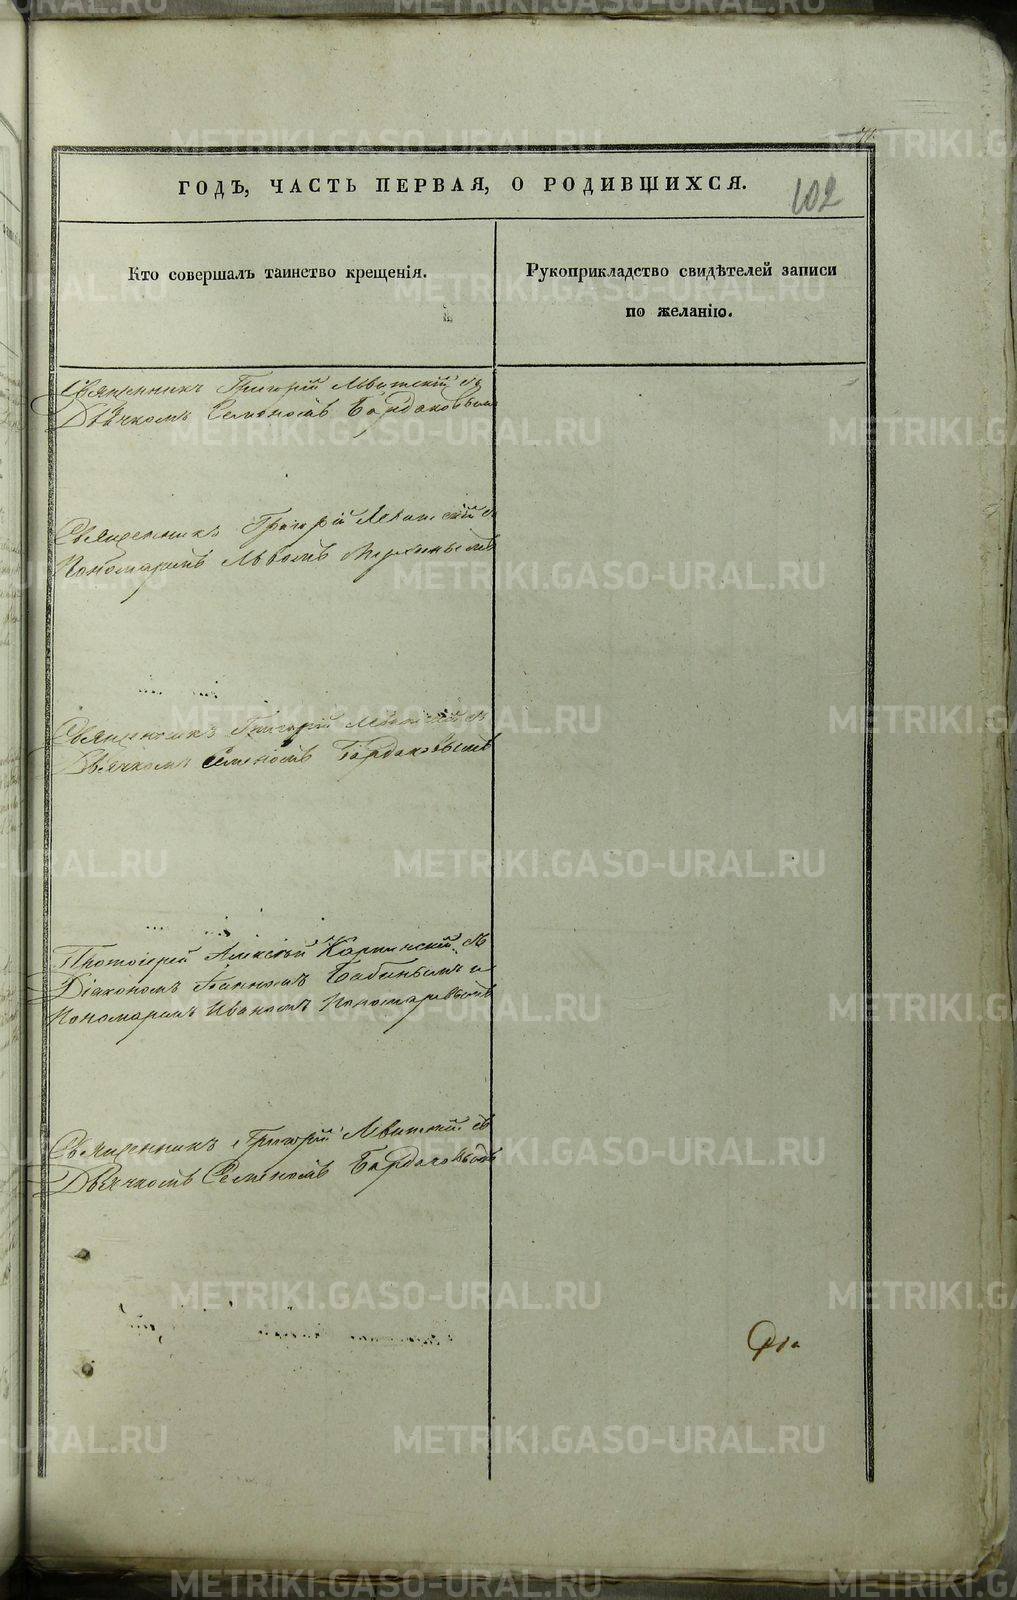 102
ГОДЪ, ЧАСТЬ ПЕРВАЯ, О РОДИВШИХСЯ.
Кто совершалъ таинство крещенія.
Рукоприкладство свидѣтелей записи
по желанію.
Священникъ Григорій Левитскій съ
Дьячкомъ Семеномъ Бардаковымъ
Священникъ Григорій Левитскій съ
Пономаремъ Львомъ
Священникъ Григорій Левитскій съ
Дьячкомъ Семеномъ Бардаковымъ
Протоіерей Алексѣй Карпинскій съ
Діакономъ Іоанномъ Бабинымъ и
Пономаремъ Иваномъ Пономаревымъ
Священникъ Григорій Левитскій съ
Дьячкомъ Семеномъ Бардаковымъ
METRIKI.GASO-URAL.RU